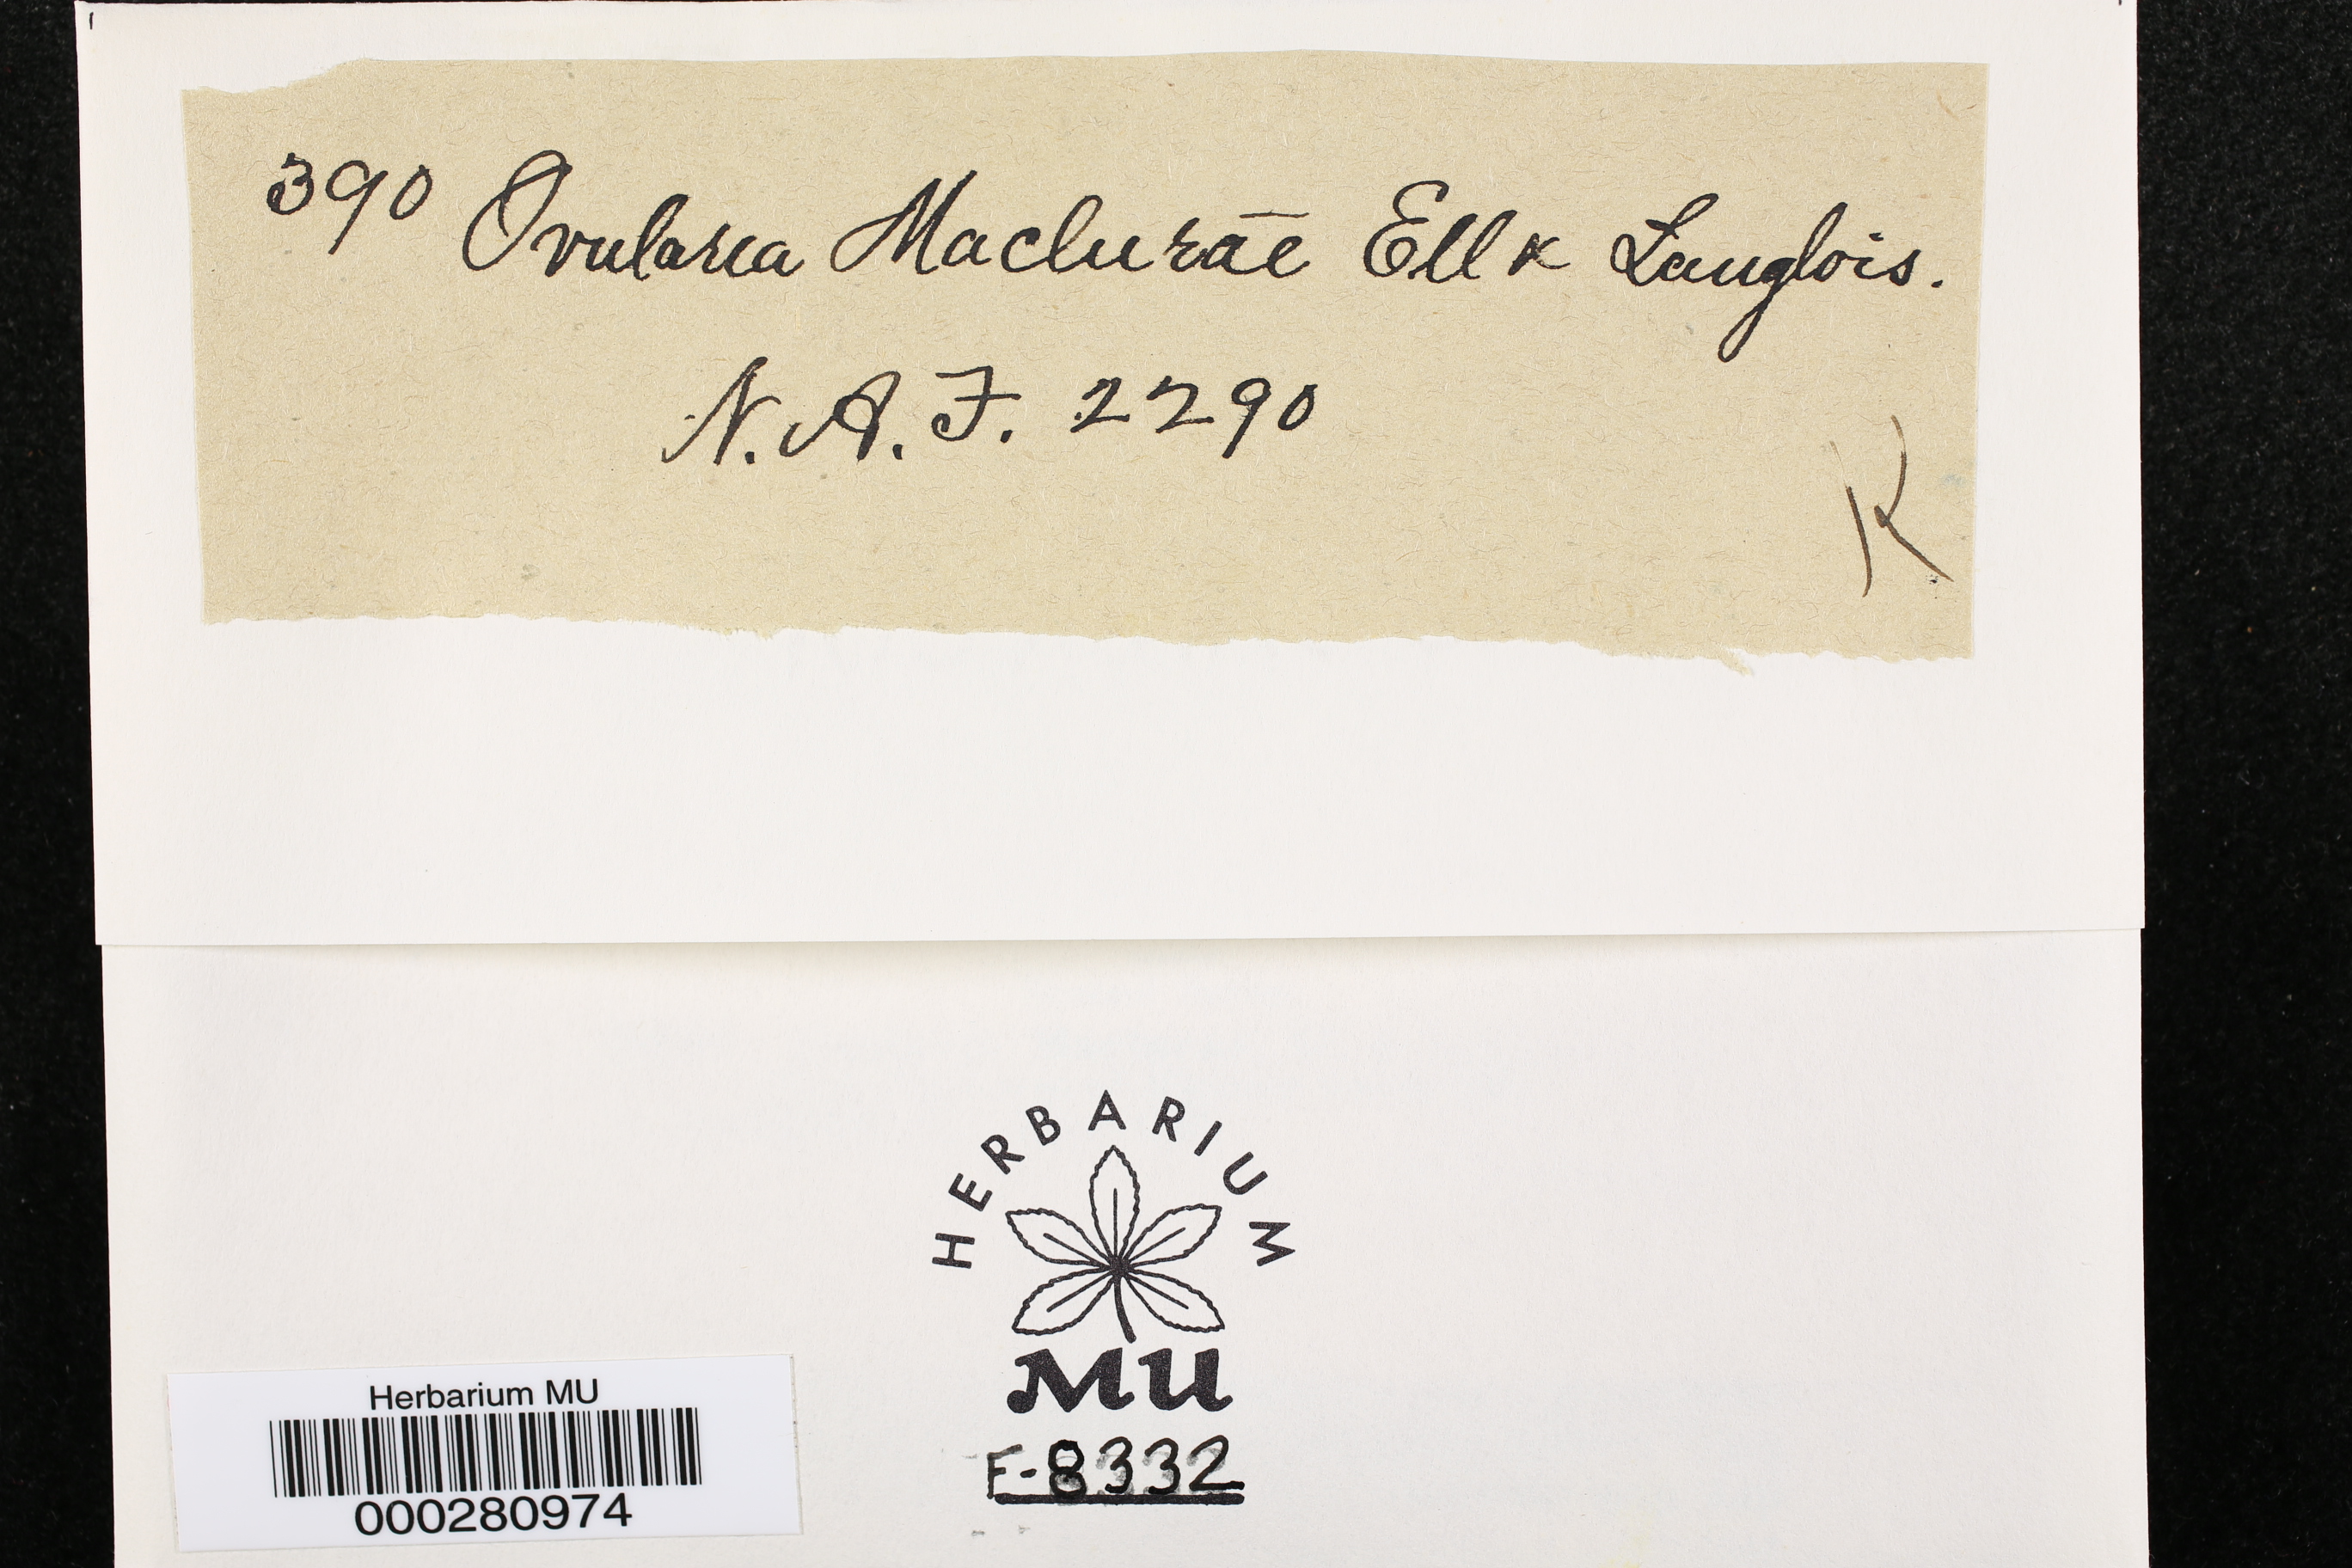 390 Ovularia Maclurae Ell & Langlois.
N. A. F. 2290
K
HERBARIUM
MU
F-8332
Herbarium MU
000280974